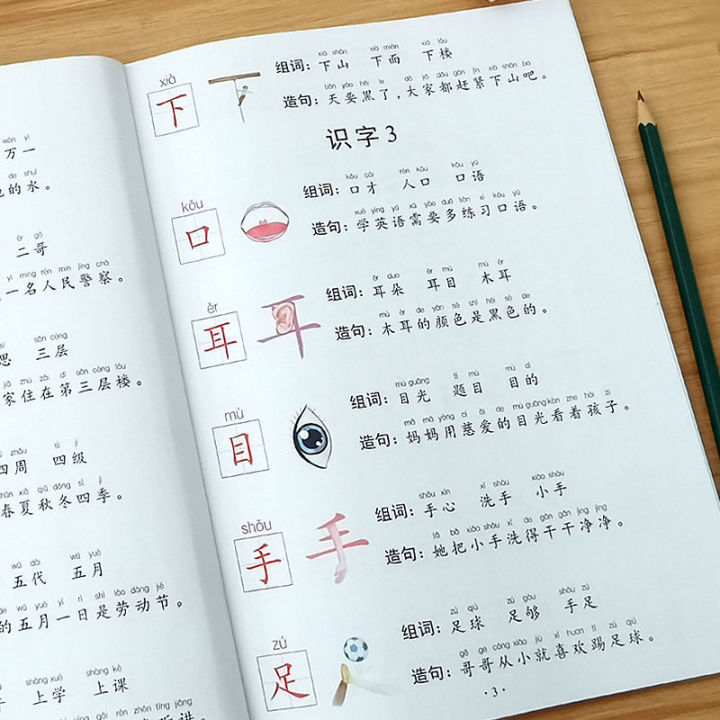 wàn yī
万一
de shuǐ
的水。
èr gē
二哥
yì míng rén mín jǐng chá
一名人民警察。
sān céng
思 三层
jiā zhù zài dì sān céng lóu
家住在第三层楼。
zhōu sì jí
四周 四级
chūn xià qiū dōng sì jì
春夏秋冬四季。
wǔ dài wǔ yuè
五代 五月
de wǔ yuè yī rì shì láo dòng jié
的五月一日是劳动节。
shàng xué shàng kè
上学 上课
xià
下
xià shān xià miàn xià lóu
组词：下山 下面 下楼
tiān yào hēi le dà jiā dōu gǎn jǐn xià shān ba
造句：天要黑了，大家都赶紧下山吧。
识字3
kǒu
口
kǒu cái rén kǒu kǒu yǔ
组词：口才 人口 口语
xué yīng yǔ xū yào duō liàn xí kǒu yǔ
造句：学英语需要多练习口语。
ěr
耳
ěr duo ěr mù mù ěr
组词：耳朵 耳目 木耳
mù ěr de yán sè shì hēi sè de
造句：木耳的颜色是黑色的。
mù
目
mù guāng tí mù mù dì
组词：目光 题目 目的
mā ma yòng cí ài de mù guāng kàn zhe hái zi
造句：妈妈用慈爱的目光看着孩子。
shǒu
手
shǒu xīn xǐ shǒu xiǎo shǒu
组词：手心 洗手 小手
tā bǎ xiǎo shǒu xǐ de gān gān jìng jìng
造句：她把小手洗得干干净净。
zú
足
zú qiú zú gòu shǒu zú
组词：足球 足够 手足
gē ge cóng xiǎo jiù xǐ huan tī zú qiú
造句：哥哥从小就喜欢踢足球。
·3·